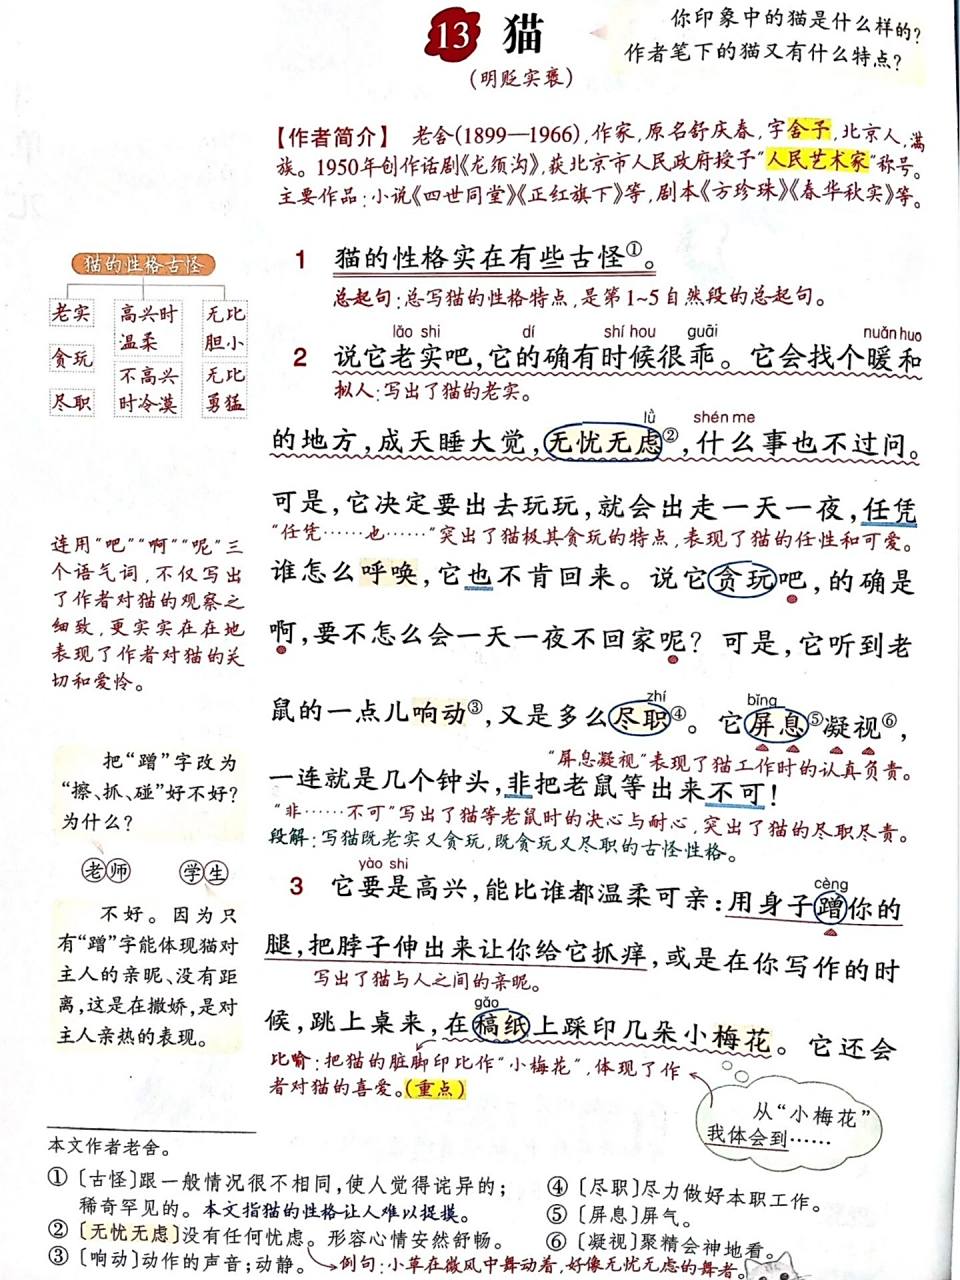 13 猫
(明贬实褒)
你印象中的猫是什么样的?
作者笔下的猫又有什么特点?
【作者简介】 老舍(1899—1966),作家,原名舒庆春,字舍予,北京人,满
族。1950年创作话剧《龙须沟》,获北京市人民政府授予“人民艺术家”称号。
主要作品:小说《四世同堂》《正红旗下》等,剧本《方珍珠》《春华秋实》等。
猫的性格古怪
老实
贪玩
尽职
高兴时
温柔
不高兴
时冷漠
无比
胆小
无比
勇猛
1 猫的性格实在有些古怪①。
总起句:总写猫的性格特点,是第1~5自然段的总起句。
lǎo shi dí shí hou guāi nuǎn huo
2 说它老实吧,它的确有时候很乖。它会找个暖和
拟人:写出了猫的老实。
lǜ shén me
的地方,成天睡大觉,无忧无虑②,什么事也不过问。
可是,它决定要出去玩玩,就会出走一天一夜,任凭
“任凭……也……”突出了猫极其贪玩的特点,表现了猫的任性和可爱。
谁怎么呼唤,它也不肯回来。说它贪玩吧,的确是
啊,要不怎么会一天一夜不回家呢?可是,它听到老
zhí bǐng
鼠的一点儿响动③,又是多么尽职④。它屏息⑤凝视⑥,
“屏息凝视”表现了猫工作时的认真负责。
一连就是几个钟头,非把老鼠等出来不可!
“非……不可”写出了猫等老鼠时的决心与耐心,突出了猫的尽职尽责。
段解:写猫既老实又贪玩,既贪玩又尽职的古怪性格。
连用“吧”“啊”“呢”三
个语气词,不仅写出
了作者对猫的观察之
细致,更实实在在地
表现了作者对猫的关
切和爱怜。
把“蹭”字改为
“擦、抓、碰”好不好?
为什么?
老师 学生
不好。因为只
有“蹭”字能体现猫对
主人的亲昵、没有距
离,这是在撒娇,是对
主人亲热的表现。
yào shi cèng
3 它要是高兴,能比谁都温柔可亲:用身子蹭你的
腿,把脖子伸出来让你给它抓痒,或是在你写作的时
写出了猫与人之间的亲昵。
gǎo
候,跳上桌来,在稿纸上踩印几朵小梅花。它还会
比喻:把猫的脏脚印比作“小梅花”,体现了作
者对猫的喜爱。(重点)
从“小梅花”
我体会到……
本文作者老舍。
① 〔古怪〕跟一般情况很不相同,使人觉得诧异的;
稀奇罕见的。本文指猫的性格让人难以捉摸。
② 〔无忧无虑〕没有任何忧虑。形容心情安然舒畅。
③ 〔响动〕动作的声音;动静。 例句:小草在微风中舞动着,好像无忧无虑的舞者。
④ 〔尽职〕尽力做好本职工作。
⑤ 〔屏息〕屏气。
⑥ 〔凝视〕聚精会神地看。